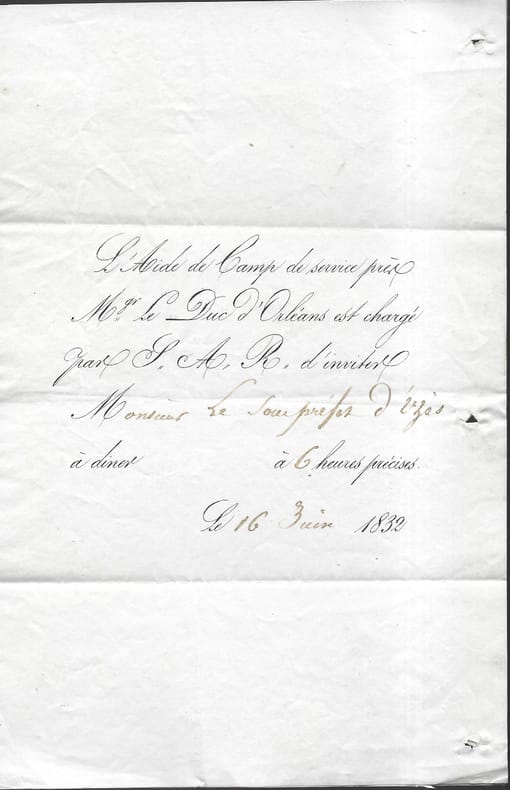 L'Aide de Camp de service près
Mgr Le Duc d'Orléans est chargé
par S. A. R. d'inviter
Monsieur Le Sous préfet d'Uzès
à diner à 6 heures précises.
Le 16 Juin 1832